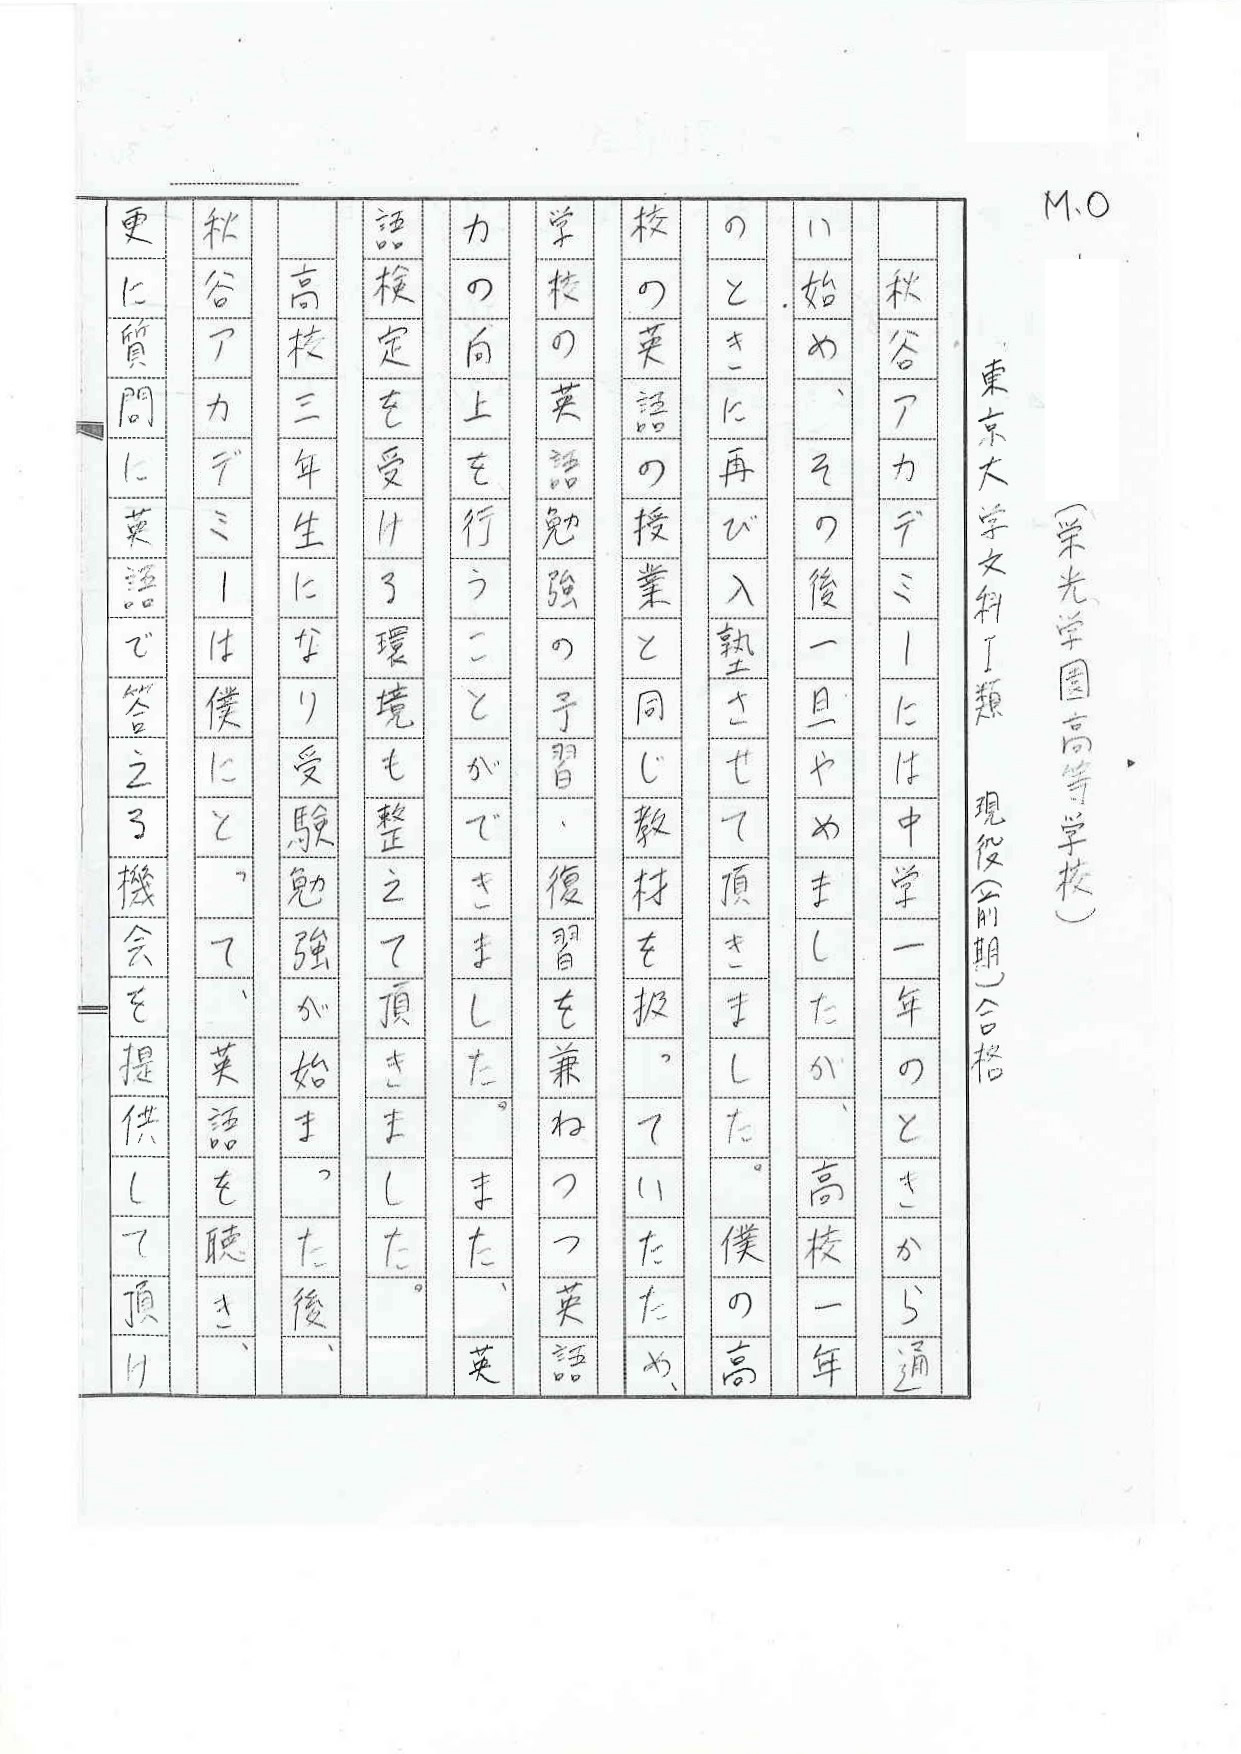 M.O
(栄光学園高等学校)
東京大学文科I類 現役(前期)合格
秋谷アカデミーには中学一年のときから通
い始め、その後一旦やめましたが、高校一年
のときに再び入塾させて頂きました。僕の高
校の英語の授業と同じ教材を扱っていたため、
学校の英語勉強の予習・復習を兼ねつつ英語
力の向上を行うことができました。また、英
語検定を受ける環境も整えて頂きました。
高校三年生になり受験勉強が始まった後、
秋谷アカデミーは僕にとって、英語を聴き、
更に質問に英語で答える機会を提供して頂け